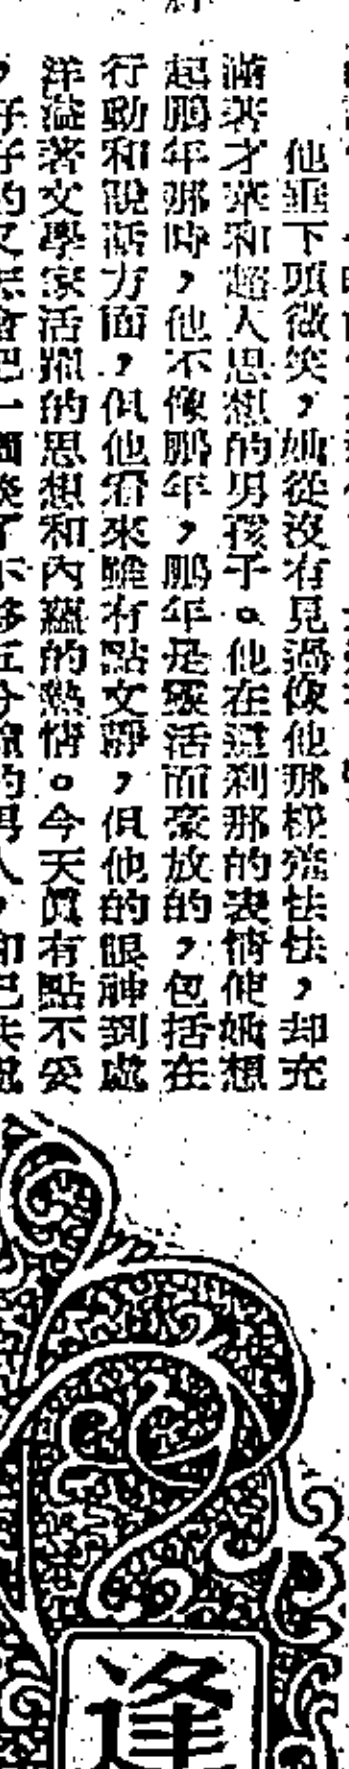 他垂下頭微笑，她從沒有見過像他那樣羞怯怯，却充
滿著才華和超人思想的男孩子。他在這刹那的表情使她想
起鵬年那時，他不像鵬年，鵬年是靈活而豪放的，包括在
行動和說話方面，但他看來雖有點文靜，但他的眼神到處
洋溢著文學家活躍的思想和內蘊的熱情。今天眞有點不妥
逢